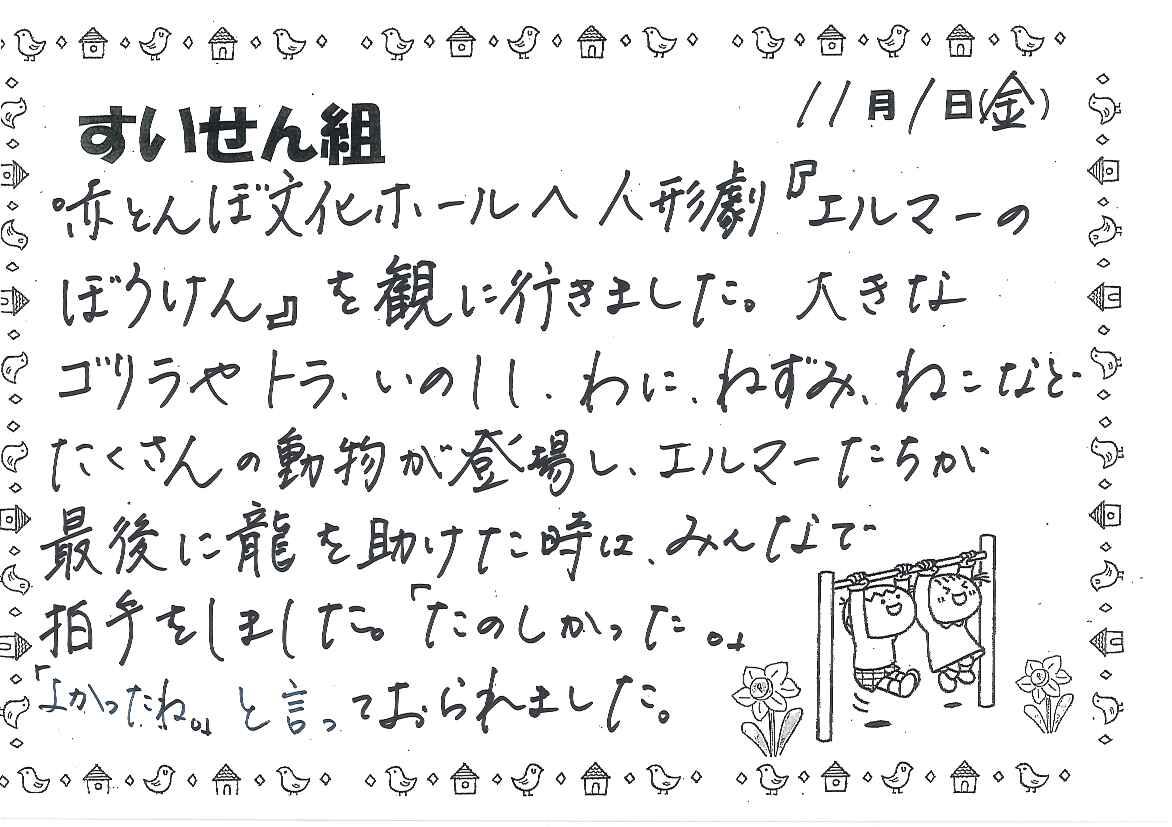 11月1日(金)
すいせん組
。赤とんぼ文化ホールへ人形劇『エルマーの
ぼうけん』を観に行きました。大きな
ゴリラやトラ、いのしし、わに、ねずみ、ねこなど
たくさんの動物が登場し、エルマーたちが
最後に龍を助けた時は、みんなで
拍手をしました。「たのしかった。」
「よかったね。」と言っておられました。